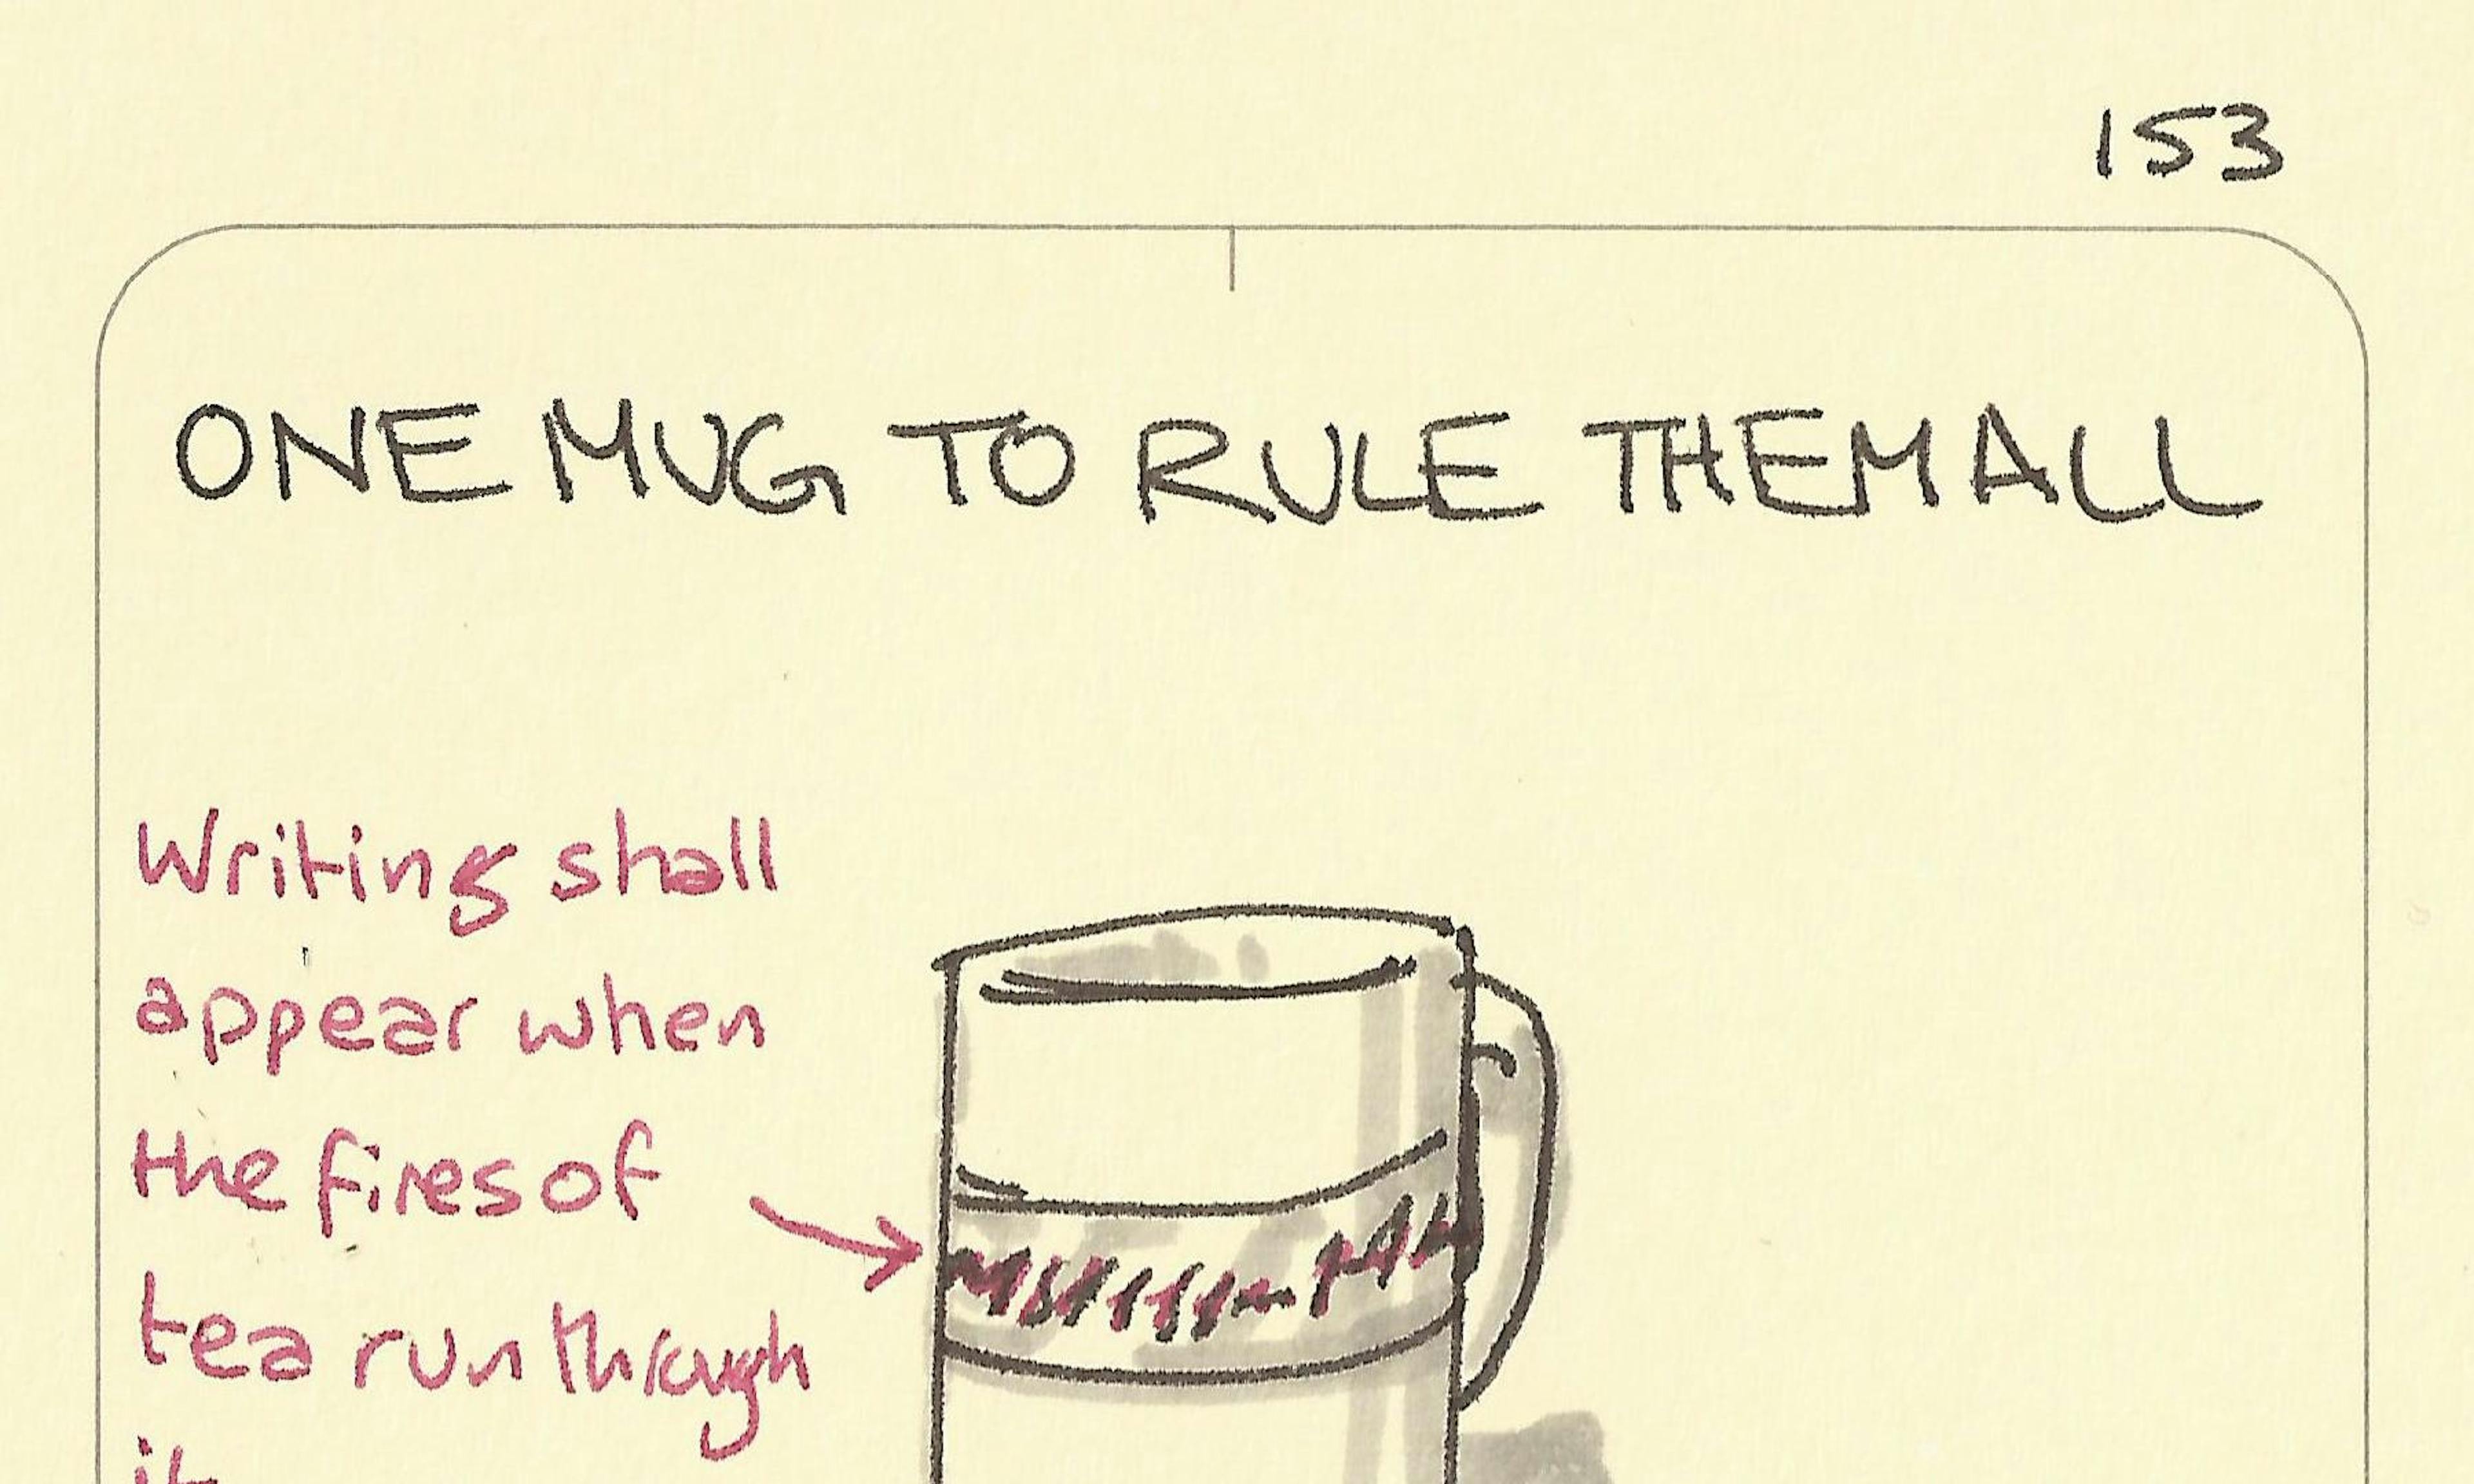 153
ONE MUG TO RULE THEM ALL
Writing shall
appear when
the fires of
tea run through
it